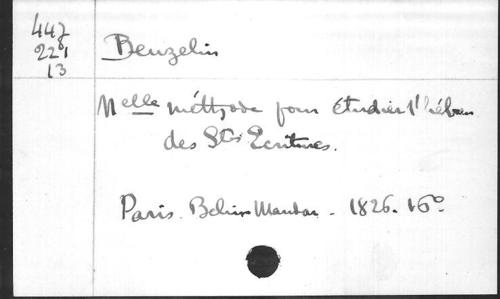 447
221
13
Benzelin
Nelle méthode pour étudier l'hébreu
des Stes Ecritures.
Paris. Belin Mandar - 1826. 16º